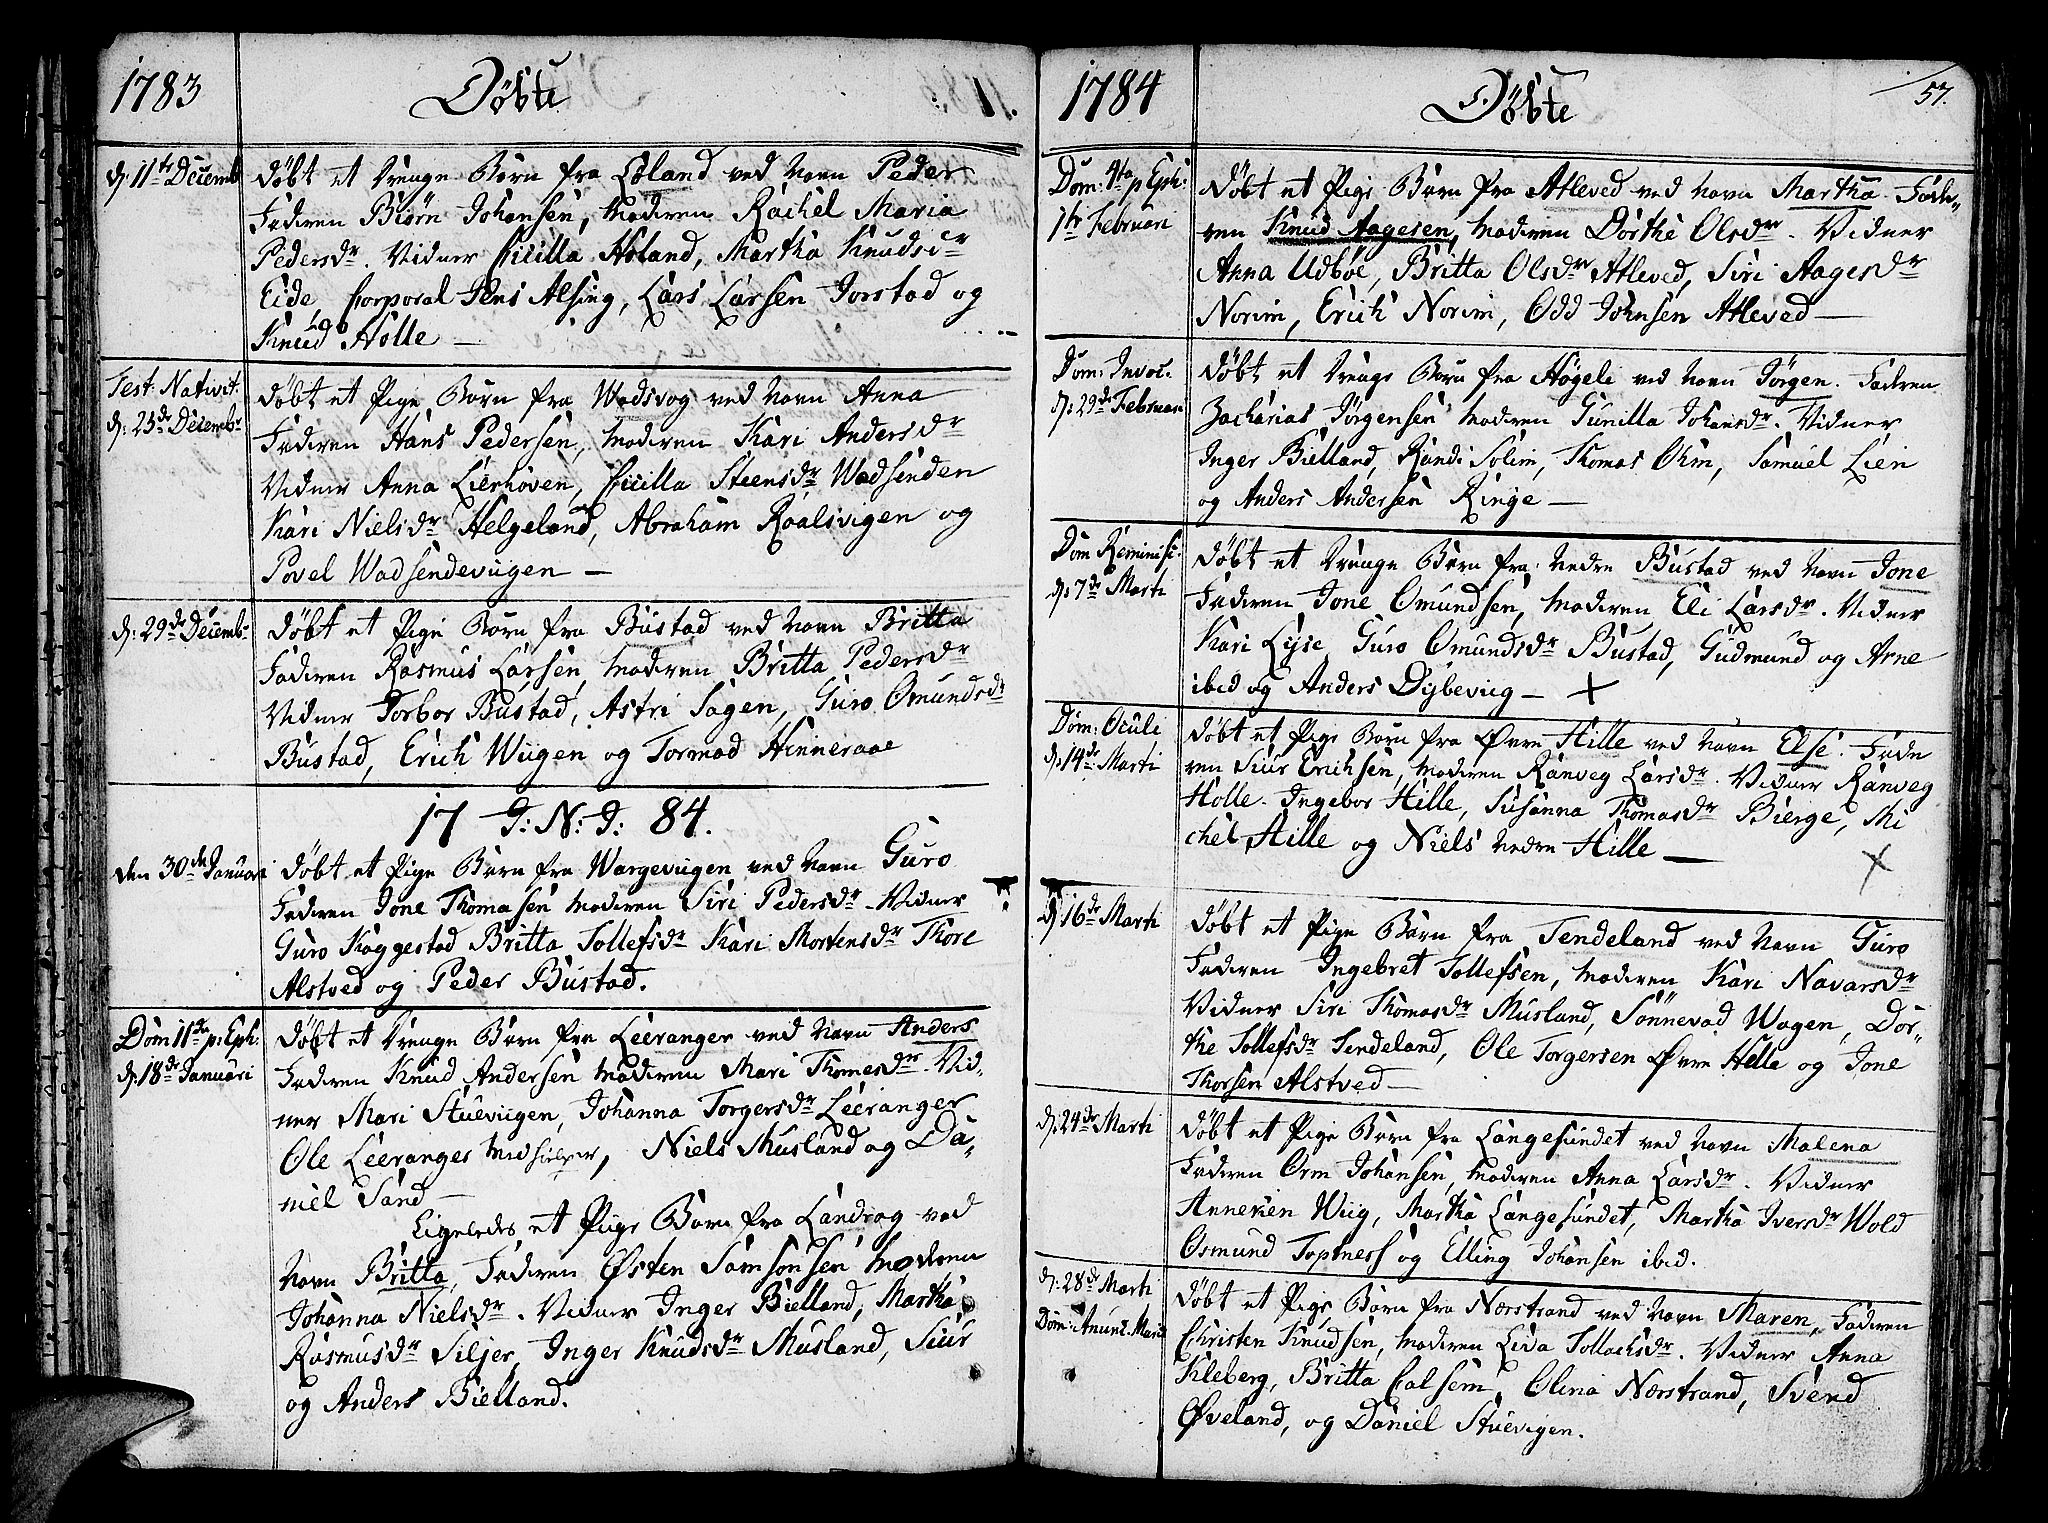 1783 Döbte
d. 11te Decemb
Döbt et Drenge Barn fra Löland ved Navn Peder
Faderen Biörn Johansen, Moderen Rachel Maria
Pedersdr. Vidner Cicilla Höland, Martha Knudsdr
Eide Corporal Jens Alsing, Lars Larsen Jorstad og
Knud Hölle —
Fest: Nativit:
d: 25de Decembr
Döbt et Pige Barn fra Wadsvog ved Navn Anna
Faderen Hans Pedersen, Moderen Kari Andersdr
Vidner Anna Lierhöven, Cicilla Steensdr Wadsenden
Kari Nielsdr Helgeland, Abraham Roalsvigen og
Povel Wadsendeviigen —
d: 29de Decembr
Döbt et Pige Barn fra Bustad ved Navn Britta
Faderen Rasmus Larsen, Moderen Britta Pedersdr
Vidner Torbor Bustad, Astri Sagen, Guro Omundsdr
Bustad, Erich Wiigen og Tormod Hinneraae
17 J: N: J: 84.
den 30de Januari
Döbt et Pige Barn fra Wargeviigen ved Navn Guro
Faderen Jone Thomasen Moderen Siri Pedersdr. Vidner
Guro Kaggestad Britta Tollefsdr Kari Mortensdr Thore
Alstved og Peder Bustad.
Dom 11da p: Eph:
d: 18de Januari
Döbt et Drenge Barn fra Leeranger ved Navn Anders
Faderen Knud Andersen Moderen Mari Thomesdr. Vid-
ner Mari Stueviigen, Johanna Torgersdr Leeranger
Ole Leeranges Medhielper, Niels Musland og Da-
niel Sand —
Ligeledes et Piige Barn fra Landrog ved
Navn Britta, Faderen Østen Samsonsen Moderen
Johanna Nielsdr. Vidner Inger Bielland, Martha
Rasmusdr Siljer, Inger Knudsdr Musland, Siur
og Anders Bielland.
1784 Döbte 57.
Dom: 4ta p Eph:
1ste Februari
Döbt et Pige Barn fra Atleved ved Navn Martha. Fade-
ren Knud Aagesen, Moderen Dorthe Olsdr. Vidner
Anna Udböe, Britta Olsdr Atleved, Siri Aagesdr
Norim, Erich Norim, Odd Johnsen Atleved —
Dom: Invoc.
d: 29de Februari
Döbt et Drenge Barn fra Högeli ved Navn Jörgen. Faderen
Zacharias Jörgensen Moderen Gunilla Johansdr. Vidner
Inger Bielland, Randi Solim, Thomas Ohm, Samuel Lien
og Anders Andersen Ringe —
Dom Reminisc.
d: 7de Marti
Döbt et Drenge Barn fra Nedre Bustad ved Navn Jone
Faderen Jone Omundsen, Moderen Eli Larsdr. Vidner
Kari Lyse Guro Omundsdr Bustad, Gudmund og Arne
ibid og Anders Dybeviig — X
Dom: Oculi
d: 14de Marti
Döbt et Pige Barn fra Øvre Hille ved Navn Else. Fade
ren Siur Erichsen, Moderen Ranveg Larsdr. Vidner Ranveg
Holle. Ingebor Hille, Susanna Thomasdr Bierge, Mi
chel Hille og Niels Nedre Hille —
X
d: 16de Marti
Döbt et Pige Barn fra Tendeland ved Navn Guro
Faderen Ingebret Tollefsen, Moderen Kari Navarsdr
Vidner Siri Thomasdr Musland, Sönnevad Wagen, Dor-
the Tollefsdr Tendeland, Ole Torgersen Øvre Helle og Jone
Thorsen Alstved —
d: 24de Marti
Döbt et Pige Barn fra Langesundet ved Navn Malena
Faderen Orm Johansen, Moderen Anna Larsdr. Vidner
Anneken Wiig, Martha Langesundet, Martha Iversdr Wold
Osmund Toptness og Elling Johansen ibid.
d: 28de Marti
Dom: Anunt. Mariæ
Döbt et Pige Barn fra Nærstrand ved Navn Maren, Faderen
Christen Knudsen, Moderen Liva Tollachsdr. Vidner Anna
Kleberg, Britta Calsem, Olina Nærstrand, Svend
Øveland, og Daniel Stuevigen.